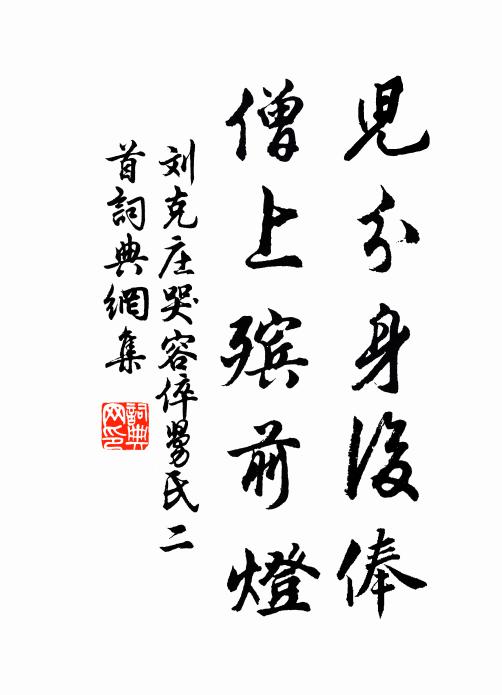 兒分身後俸
僧上殯前燈
刘克庄哭容倅舅氏二
首詞典網集
詞典网印